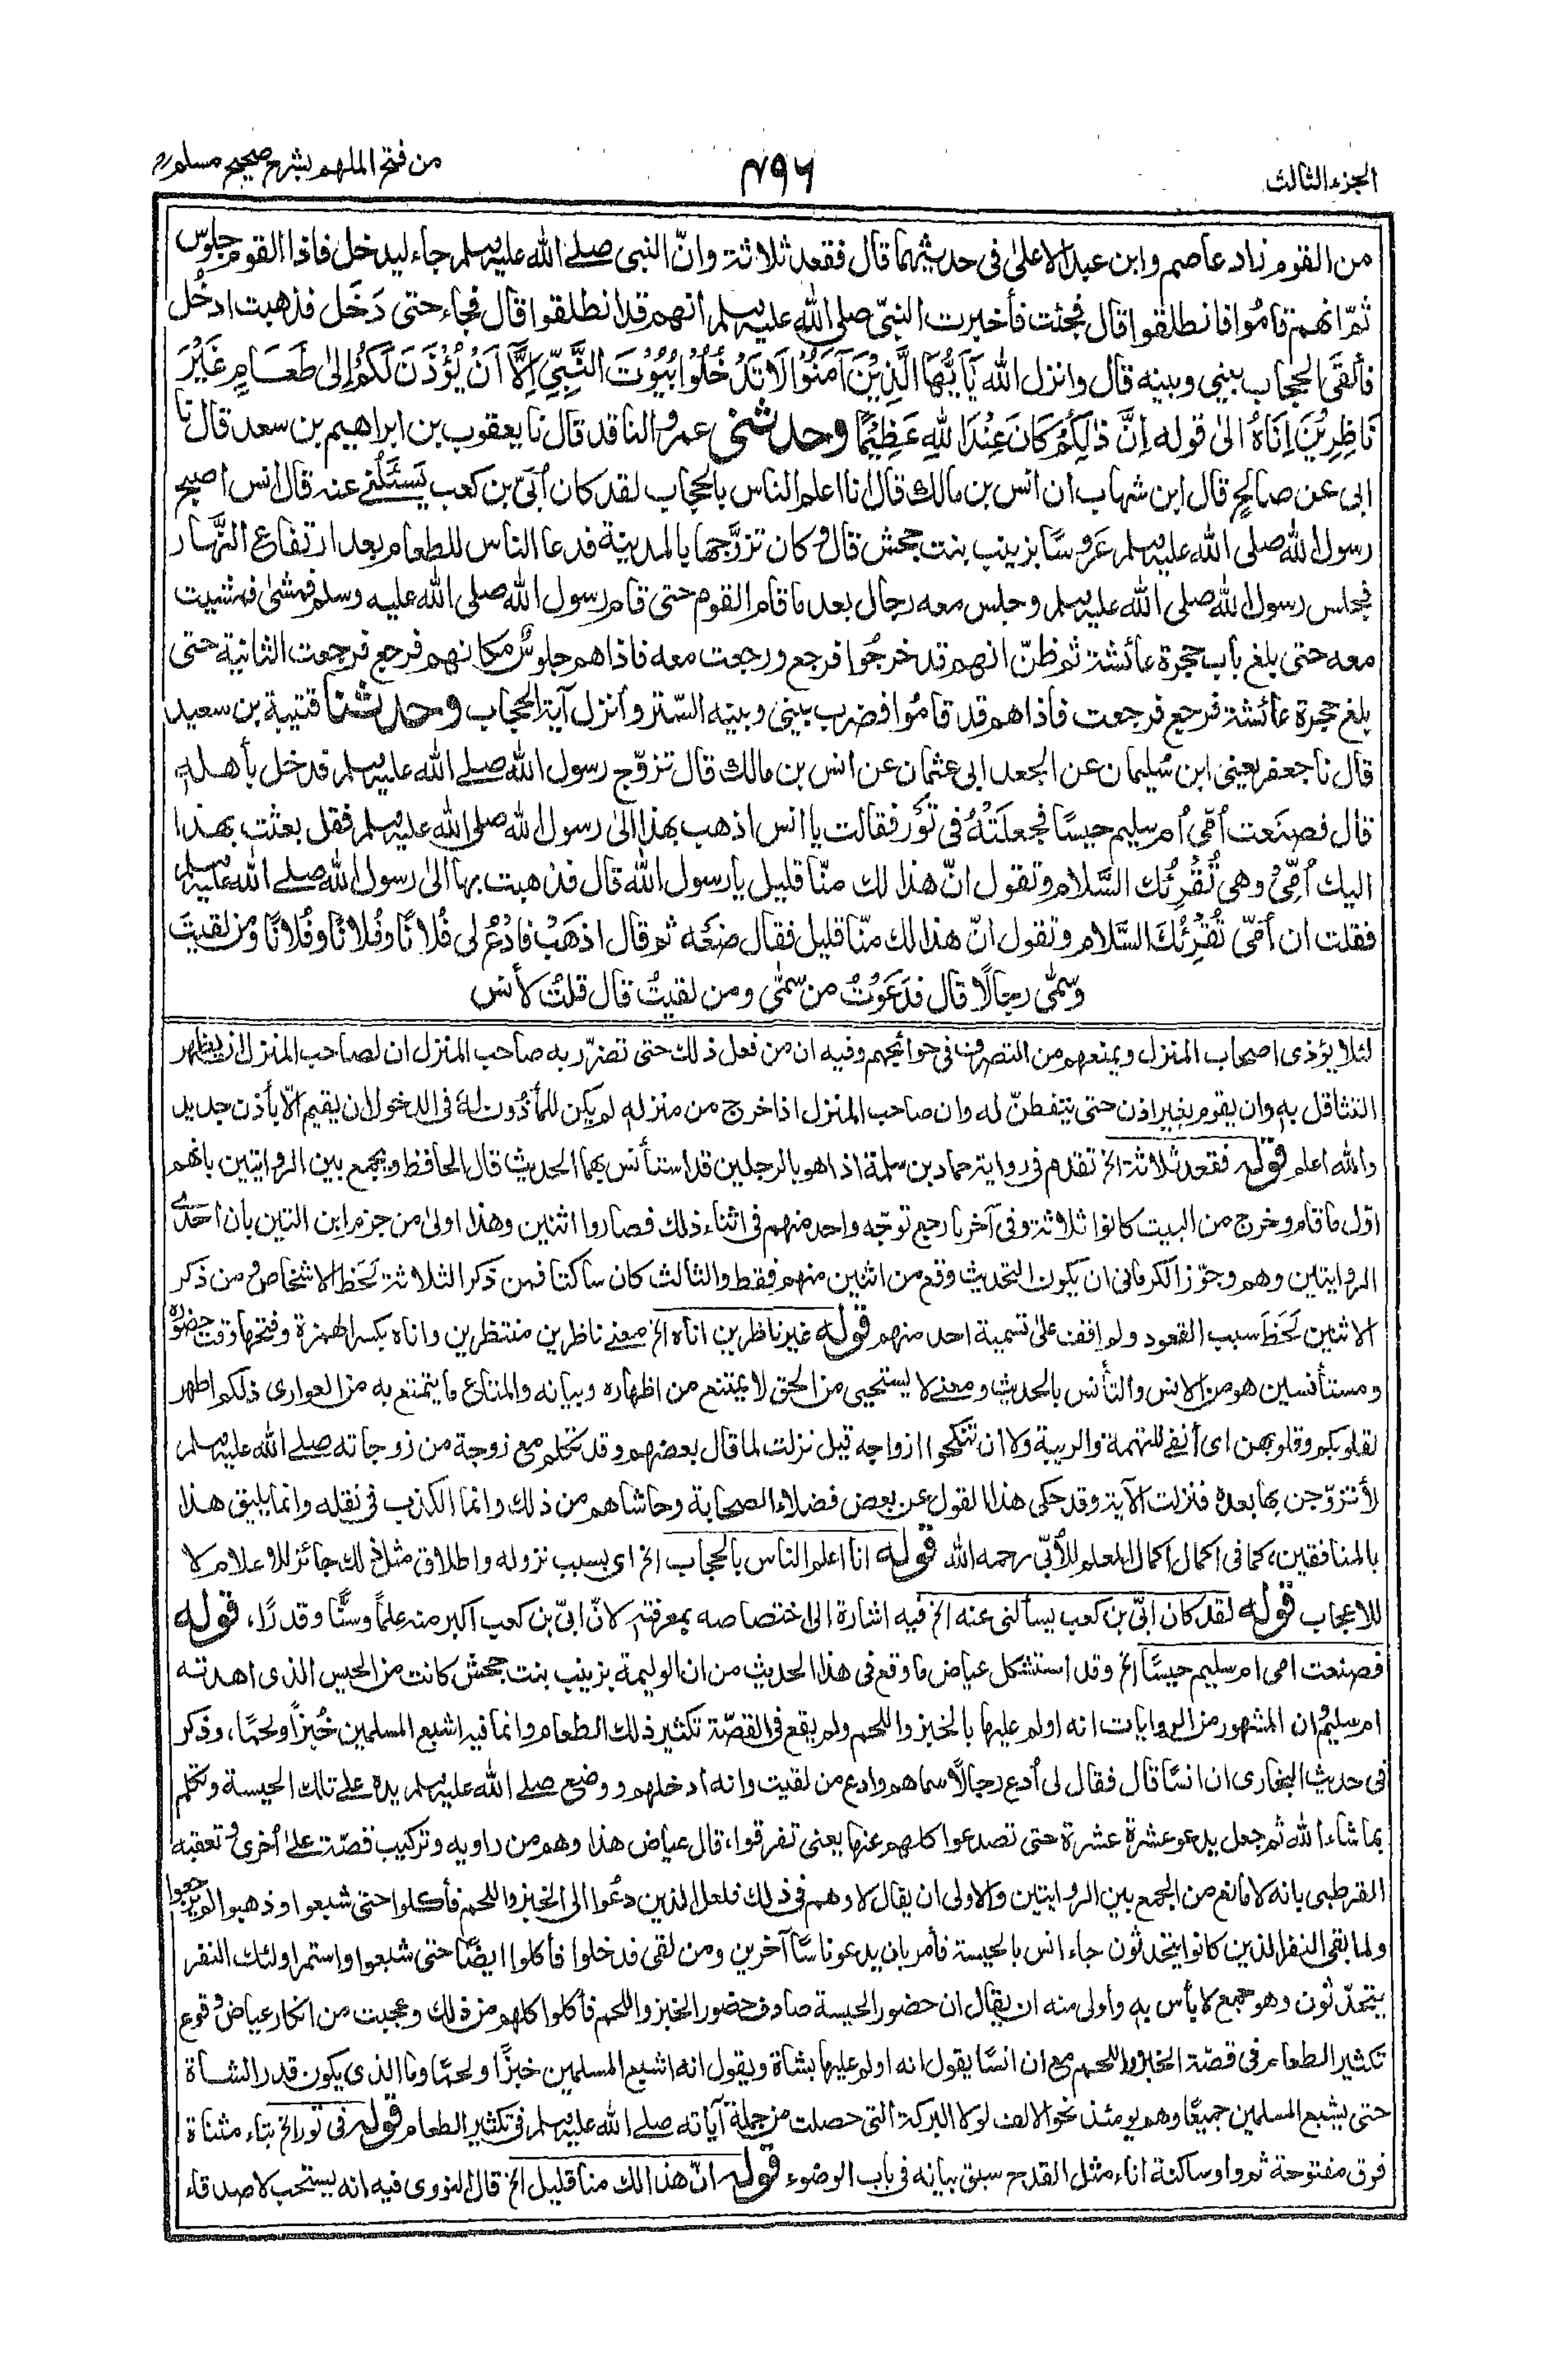 الجزء الثالث
٤٩٦
من فتح الملهم بشرح صحيح مسلم
من القوم زاد عاصم وابن عبد الاعلىٰ فى حديثهما قال فقعد ثلاثة وانّ النبى صلے الله عليه وسلم جاء ليدخل فاذا القوم جلوس
ثمّ انهم قاموا فانطلقوا قال فجئت فأخبرت النبىّ صلى الله عليه وسلم انهم قد انطلقوا قال فجاء حتى دَخَل فذهبت ادخُل
فألقَى الحجاب بينى وبينه قال وانزل الله يَآ اَيُّهَا الَّذِيْنَ آمَنُوْا لَا تَدْخُلُوْا بُيُوْتَ النَّبِيِّ اِلَّا اَنْ يُؤْذَنَ لَكُمْ اِلىٰ طَعَامٍ غَيْرَ
نَاظِرِيْنَ اِنَاهُ الىٰ قوله اِنَّ ذٰلِكُمْ كَانَ عِنْدَ اللهِ عَظِيْمًا وحدثنى عمرو الناقد قال نا يعقوب بن ابراهيم بن سعد قال نا
ابى عن صالحٍ قال ابن شهاب ان انس بن مالك قال انا اعلم الناس بالحجاب لقد كان اُبَىّ بن كعب يَسْئَلُنِے عنه قال انس اصبح
رسول الله صلى الله عليه وسلم عَروسًا بزينب بنت جحش قال و كان تزوَّجها بالمدينة فدعا الناس للطعام بعد ارتفاع النَّهار
فجلس رسول الله صلى الله عليه وسلم وجلس معه رجال بعد ما قام القوم حتى قام رسول الله صلى الله عليه وسلم فمشىٰ فمشيت
معه حتى بلغ باب حجرة عائشة ثم ظنّ انهم قد خرجُوا فرجع ورجعت معه فاذا هم جلوسٌ مكانهم فرجع فرجعت الثانية حتى
بلغ حجرة عائشة فرجع فرجعت فاذا هم قد قامُوا فضرب بينى وبينه السّتر وأنزل آية الحجاب وحدثنا قتيبة بن سعيد
قال نا جعفر يعنى ابن سُليمان عن الجعد ابى عثمان عن انس بن مالك قال تزوّج رسول الله صلے الله عليه وسلم فدخل بأهله
قال فصنَعت اُمّى اُم سليم حيسًا فجعلَتْهُ فى تَوْر فقالت يا انس اذهب بهذا الىٰ رسول الله صلى الله عليه وسلم فقل بعثت بهذا
اليك اُمِّىْ وهى تُقْرِئُك السَّلام وتقول انّ هذا لك منّا قليل يا رسول الله قال فذهبت بها الىٰ رسول الله صلے الله عليه وسلم
فقلت ان اُمّى تُقْرِئُكَ السَّلام وتقول انّ هذا لك منّا قليل فقال ضَعْه ثم قال اذهَبْ فادْعُ لى فُلانًا وفُلانًا وفُلانًا ومن لقيتَ
وسمّٰى رجالًا قال فدَعَوْتُ من سمّٰى ومن لقيتُ قال قلتُ لأنس
لئلا يؤذى اصحاب المنزل ويمنعهم من التصرف فى حوائجهم وفيه ان من فعل ذلك حتى تضرّر به صاحب المنزل ان لصاحب المنزل ان يظهر
التثاقل به وان يقوم بغير اذن حتى يتفطنّ له وان صاحب المنزل اذا خرج من منزله لم يكن للمأذون له فى الدخول ان يقيم الّا بأذن جديد
والله اعلم قوله فقعد ثلاثة الخ تقدم فى رواية حماد بن سلمة اذا هو بالرجلين قد استأنس بهما الحديث قال الحافظ ويجمع بين الروايتين بانهم
اوّل ما قام وخرج من البيت كانوا ثلاثة وفى آخر ما رجع توجّه واحد منهم فى اثناء ذلك فصاروا اثنين وهذا اولىٰ من جزم ابن التين بان احدے
الروايتين وهم وجوّز الكرمانى ان يكون التحديث وقع من اثنين منهم فقط والثالث كان ساكتا فمن ذكر الثلاثة لَحَظ الاشخاص ومن ذكر
الاثنين لَحَظَ سبب القعود ولم اقف على تسمية احد منهم قوله غير ناظرين اناه الخ معنے ناظرين منتظرين واناه بكسر الهمزة وفتحها وقت حضوره
ومستأنسين هو من الانس والتأنس بالحديث ومعنے لا يستحيى من الحق لا يمتنع من اظهاره وبيانه والمتاع ما يتمتع به من العوارى ذلكم اطهر
لقلوبكم وقلوبهن اى أنفے للتهمة والريبة ولا ان تنكحوا ازواجه قيل نزلت لما قال بعضهم وقد تكلم مع زوجة من زوجاته صلے الله عليه وسلم
لأتزوّجن بها بعده فنزلت الآية وقد حكى هذا القول عن بعض فضلاء الصحابة وحاشاهم من ذلك وانما الكذب فى نقله وانما يليق هذا
بالمنافقين، كما فى اكمال اكمال المعلم للأبىّ رحمه الله قوله انا اعلم الناس بالحجاب الخ اى بسبب نزوله واطلاق مثل ذلك جائز للاعلام لا
للاعجاب قوله لقد كان ابىّ بن كعب يسألنى عنه الخ فيه اشارة الى اختصاصه بمعرفته لانّ ابىّ بن كعب اكبر منه علماً وسنًّا وقدرًا، قوله
فصنعت امى ام سليم حيسًا الخ وقد استشكل عياض ما وقع فى هذا الحديث من ان الوليمة بزينب بنت جحش كانت من الحيس الذى اهدته
ام سليم وان المشهور من الروايات انه اولم عليها بالخبز واللحم ولم يقع فى القصّة تكثير ذلك الطعام وانما فيه اشبع المسلمين خُبزاً ولحمًا، وذكر
فى حديث البخارى ان انسًا قال فقال لى اُدع رجالًا سماهم وادع من لقيت وانه ادخلهم ووضع صلے الله عليه وسلم يده على تلك الحيسة وتكلم
بما شاء الله ثم جعل يدعو عشرة عشرة حتى تصدعوا كلهم عنها يعنى تفرقوا، قال عياض هذا وهم من راويه وتركيب قصّة علىٰ اُخرى وتعقبه
القرطبى بانه لا مانع من الجمع بين الروايتين والاولى ان يقال لا وهم فى ذلك فلعل الذين دعُوا الى الخبز واللحم فأكلوا حتى شبعوا وذهبوا لم يرجعوا
ولما بقى النفر الذين كانوا يتحدثون جاء انس بالحيسة فأمر بان يدعو ناسًا آخرين ومن لقى فدخلوا فأكلوا ايضًا حتى شبعوا واستمر اولئك النفر
يتحدّثون وهو جمع لا بأس به وأولى منه ان يقال ان حضور الحيسة صادف حضور الخبز واللحم فأكلوا كلهم من ذلك وعجبت من انكار عياض وقوع
تكثير الطعام فى قصّة الخبز واللحم مع ان انسًا يقول انه اولم عليها بشاة ويقول انه اشبع المسلمين خبزًا ولحمًا وما الذى يكون قدر الشاة
حتى يشبع المسلمين جميعًا وهم يومئذ نحو الالف لولا البركة التى حصلت من جملة آياته صلے الله عليه وسلم فى تكثير الطعام قوله فى تور الخ بتاء مثناة
فوق مفتوحة ثم واو ساكنة اناء مثل القدح سبق بيانه فى باب الوضوء قوله انّ هذا لك منا قليل الخ قال النووى فيه انه يستحب لاصدقاء